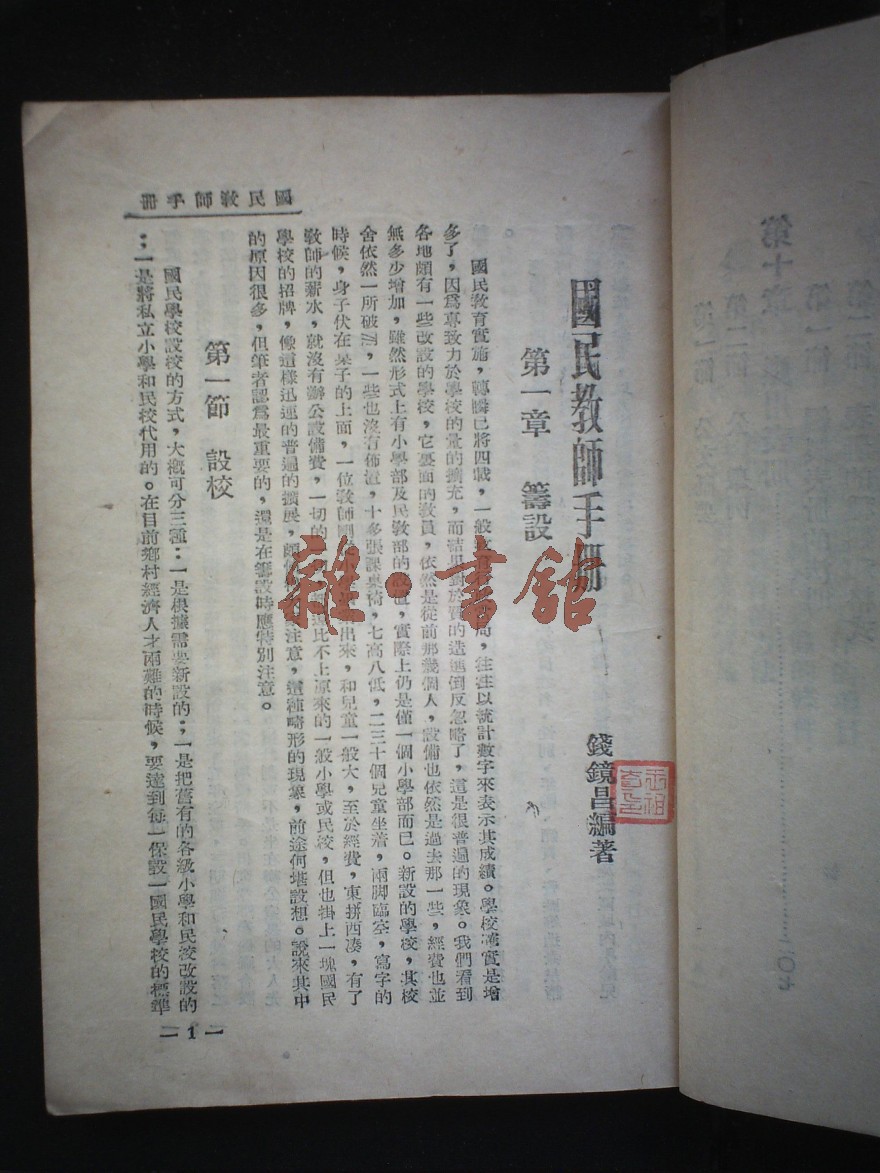 國民教師手冊
國民教師手冊
錢鏡昌編著
第一章　籌設
國民教育實施，轉瞬已將四載，一般局，往往以統計數字來表示其成績。學校確實是增
多了，因爲專致力於學校的量的擴充，而結果對於質的造進倒反忽略了，這是很普遍的現象。我們看到
各地頗有一些改設的學校，它裏面的教員，依然是從前那幾個人，設備也依然是過去那一些，經費也並
無多少增加，雖然形式上有小學部及民教部的設置，實際上仍是僅一個小學部而已。新設的學校，其校
舍依然一所破，一些也沒有佈置，十多張課桌椅，七高八低，二三十個兒童坐着，兩脚臨空，寫字的
時候，身子伏在桌子的上面，一位教師剛出來，和兒童一般大，至於經費，東拼西凑，有了
教師的薪水，就沒有辦公設備費，一切的遠比不上原來的一般小學或民校，但也掛上一塊國民
學校的招牌，像這樣迅速的普遍的擴展，注意，這種畸形的現象，前途何堪設想。說來其中
的原因很多，但筆者認爲最重要的，還是在籌設時應特別注意。
第一節　設校
國民學校設校的方式，大概可分三種：一是根據需要新設的；一是把舊有的各級小學和民校改設的
；一是將私立小學和民校代用的。在目前鄉村經濟人才兩難的時候，要達到每一保設一國民學校的標準
—1—
雜·書館
第十章
第一節
一〇七